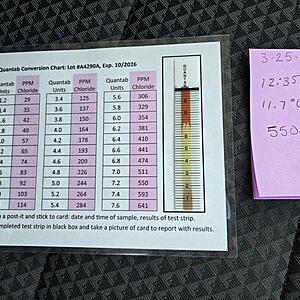 Quantab Conversion Chart: Lot #A4290A, Exp. 10/2026
Quantab Units PPM Chloride Quantab Units PPM Chloride Quantab Units PPM Chloride
1.2 29 3.4 125 5.6 306
.4 35 3.6 137 5.8 329
.6 42 3.8 150 6.0 354
.8 50 4.0 164 6.2 381
.0 57 4.2 178 6.4 410
.2 65 4.4 193 6.6 441
.4 74 4.6 209 6.8 474
.6 83 4.8 226 7.0 511
.8 92 5.0 244 7.2 550
.0 103 5.2 264 7.4 593
.2 114 5.4 284 7.6 641
on a post-it and stick to card: date and time of sample, results of test strip.
completed test strip in black box and take a picture of card to report with results.
QUANTAB
3-25-
12:35
11.7°
550